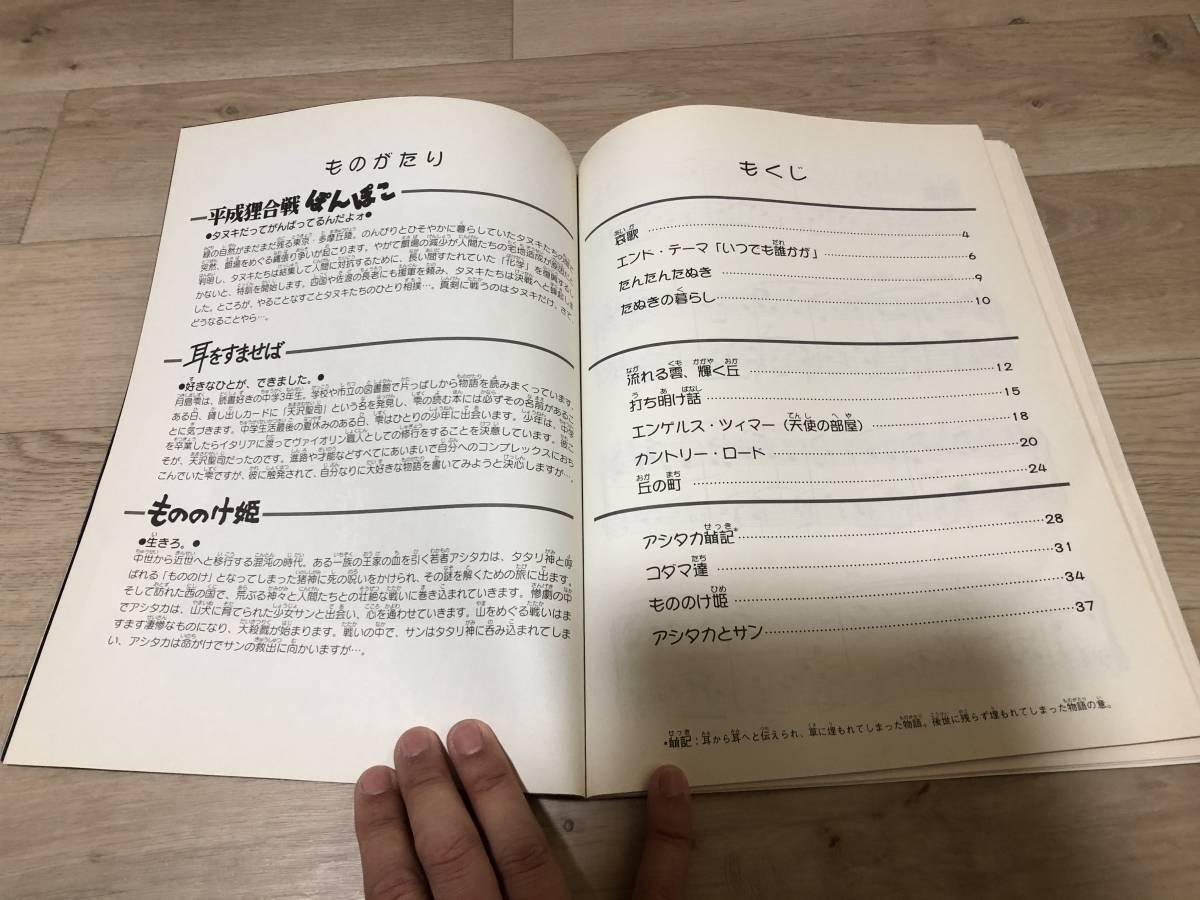 ものがたり
平成狸合戦 ぽんぽこ
●タヌキだってがんばってるんだよォ●
緑の自然がまだまだ残る東京・多摩丘陵。のんびりとひそやかに暮らしていたタヌキたちの間
突然、餌場をめぐる縄張り争いが起こります。やがて餌場の減少が人間たちの宅地造成が原因
判明し、タヌキたちは結集して人間に対抗するために、長い間すたれていた「化学」を復興する
かないと、特訓を開始します。四国や佐渡の長老にも援軍を頼み、タヌキたちは決戦へと
した。ところが、やることなすことタヌキたちのひとり相撲…。真剣に戦うのはタヌキだけ。さて、
どうなることやら…。
耳をすませば
●好きなひとが、できました。●
月島雫は、読書好きの中学3年生。学校や市立の図書館で片っぱしから物語を読みまくっています。
ある日、貸し出しカードに「天沢聖司」という名を発見し、雫の読む本には必ずその名前があるこ
とに気づきます。中学生活最後の夏休みのある日、雫はひとりの少年に出会います。少年は、中学
を卒業したらイタリアに渡ってヴァイオリン職人としての修行をすることを決意しています。彼こ
そが、天沢聖司だったのです。進路や才能などすべてにあいまいで自分へのコンプレックスにおち
こんでいた雫ですが、彼に触発されて、自分なりに大好きな物語を書いてみようと決心しますが…。
もののけ姫
●生きろ。●
中世から近世へと移行する混沌の時代。ある一族の王家の血を引く若者アシタカは、タタリ神と呼
ばれる「もののけ」となってしまった猪神に死の呪いをかけられ、その謎を解くための旅に出ます。
そして訪れた西の国で、荒ぶる神々と人間たちとの壮絶な戦いに巻き込まれていきます。惨劇の中
でアシタカは、山犬に育てられた少女サンと出会い、心を通わせていきます。山をめぐる戦いはま
すます凄惨なものになり、大殺戮が始まります。戦いの中で、サンはタタリ神に呑み込まれてしま
い、アシタカは命がけでサンの救出に向かいますが…。
もくじ
哀歌 4
エンド・テーマ「いつでも誰かが」 6
たんたんたぬき 9
たぬきの暮らし 10
流れる雲、輝く丘 12
打ち明け話 15
エンゲルス・ツィマー（天使の部屋） 18
カントリー・ロード 20
丘の町 24
アシタカ𦻙記* 28
コダマ達 31
もののけ姫 34
アシタカとサン 37
*𦻙記：耳から耳へと伝えられ、草に埋もれてしまった物語。後世に残らず埋もれてしまった物語の意。